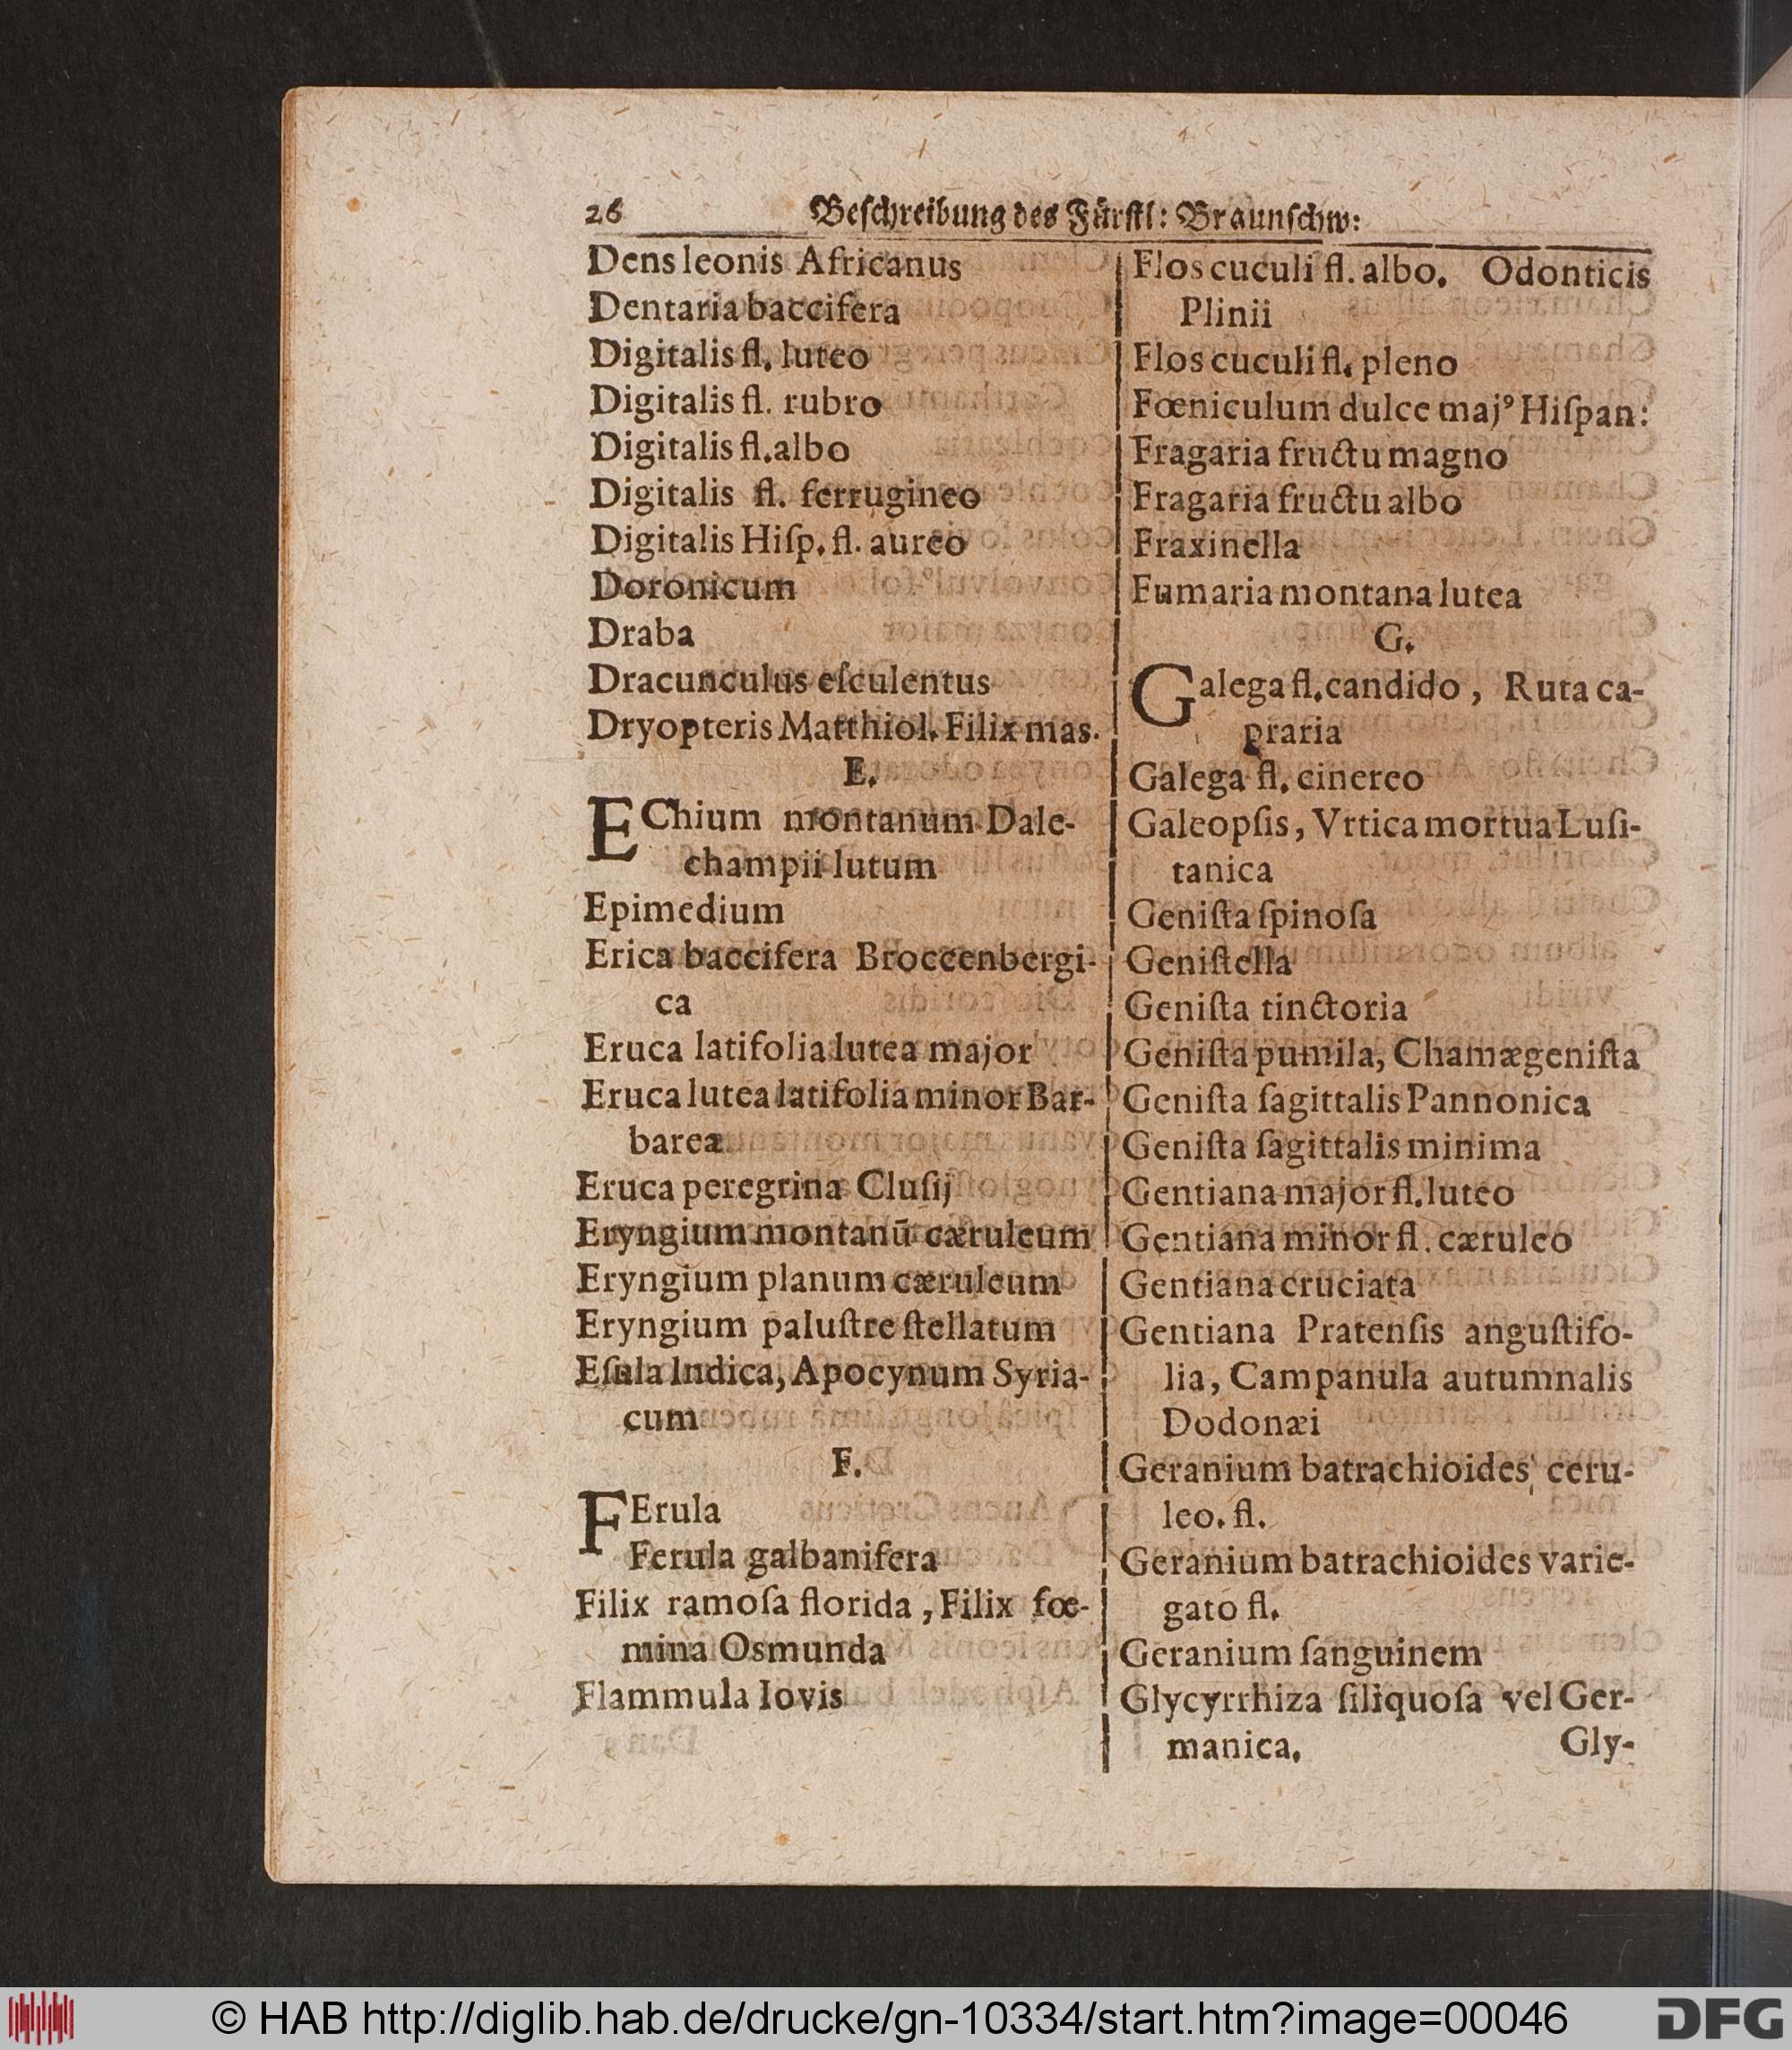 26 Beſchreibung des Fürſtl: Braunſchw:
Dens leonis Africanus
Dentaria baccifera
Digitalis fl. luteo
Digitalis fl. rubro
Digitalis fl. albo
Digitalis fl. ferrugineo
Digitalis Hiſp. fl. aureo
Doronicum
Draba
Dracunculus eſculentus
Dryopteris Matthiol. Filix mas.
E.
EChium montanum Dale-
champii lutum
Epimedium
Erica baccifera Broccenbergi-
ca
Eruca latifolia lutea major
Eruca lutea latifolia minor Bar-
bareæ
Eruca peregrina Cluſij
Eryngium montanū cæruleum
Eryngium planum cæruleum
Eryngium paluſtre ſtellatum
Eſula Indica, Apocynum Syria-
cum
F.
FErula
Ferula galbanifera
Filix ramoſa florida, Filix fœ-
mina Osmunda
Flammula Iovis
Flos cuculi fl. albo. Odonticis
Plinii
Flos cuculi fl. pleno
Fœniculum dulce majꝰ Hiſpan:
Fragaria fructu magno
Fragaria fructu albo
Fraxinella
Fumaria montana lutea
G.
Galega fl. candido, Ruta ca-
praria
Galega fl. cinereo
Galeopſis, Vrtica mortua Luſi-
tanica
Geniſta ſpinoſa
Geniſtella
Geniſta tinctoria
Geniſta pumila, Chamægeniſta
Geniſta ſagittalis Pannonica
Geniſta ſagittalis minima
Gentiana major fl. luteo
Gentiana minor fl. cæruleo
Gentiana cruciata
Gentiana Pratenſis anguſtifo-
lia, Campanula autumnalis
Dodonæi
Geranium batrachioides ceru-
leo. fl.
Geranium batrachioides varie-
gato fl.
Geranium ſanguinem
Glycyrrhiza ſiliquoſa vel Ger-
manica. Gly-
© HAB http://diglib.hab.de/drucke/gn-10334/start.htm?image=00046 DFG